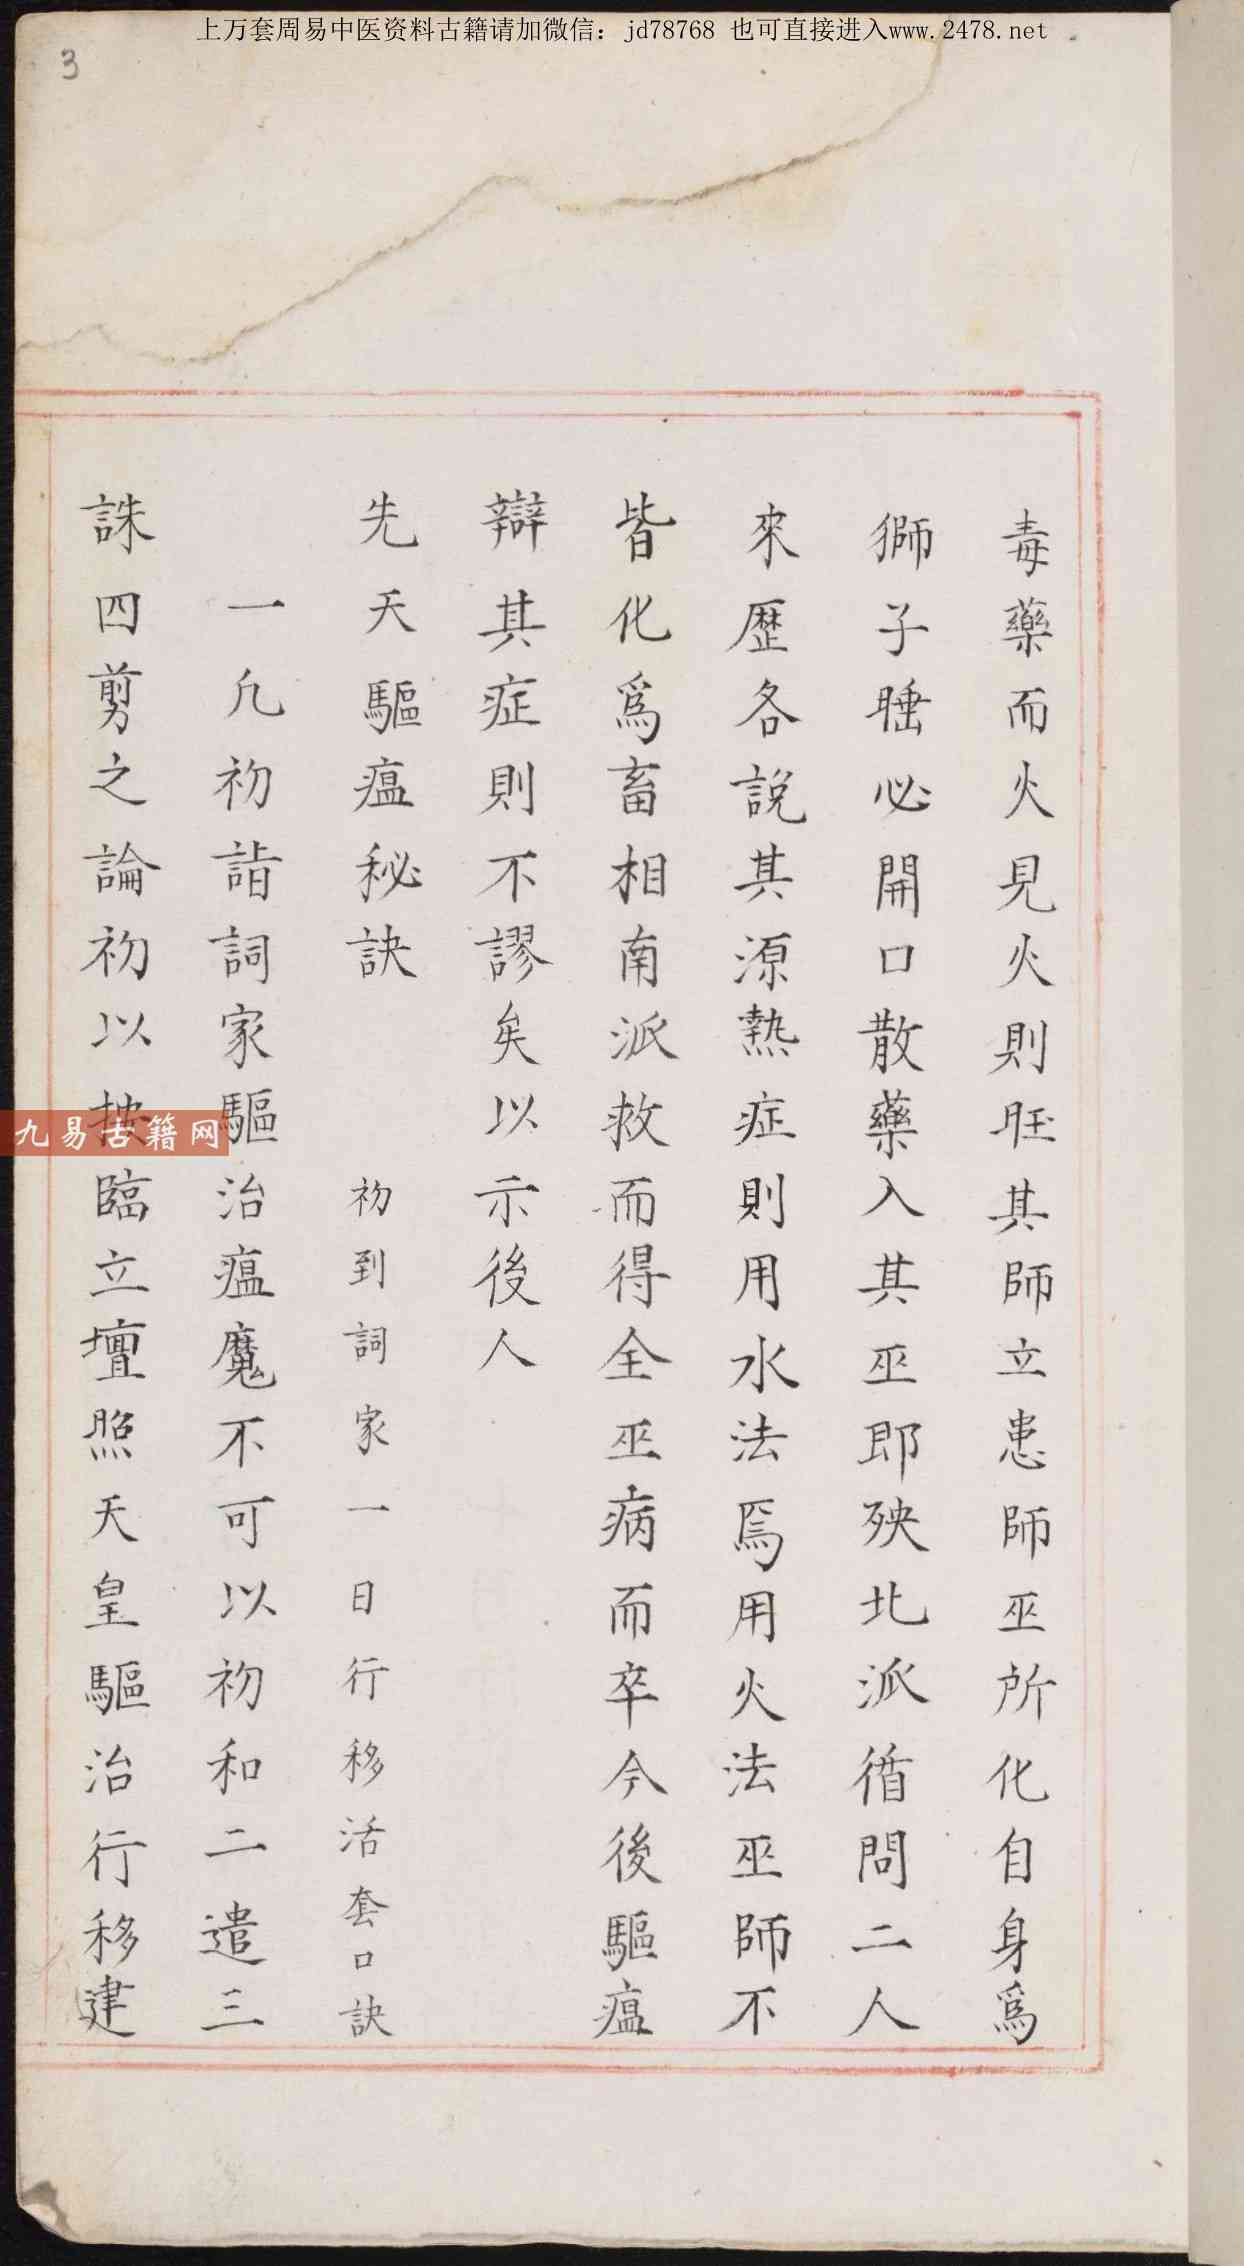 上万套周易中医资料古籍请加微信：jd78768 也可直接进入www.2478.net
3
毒藥而火見火則旺其師立患師巫所化自身爲
獅子睡必開口散藥入其巫即殃北派循問二人
來歷各說其源熱症則用水法焉用火法巫師不
皆化爲畜相南派救而得全巫病而卒今後驅瘟
辯其症則不謬矣以示後人
先天驅瘟秘訣 初到詞家一日行移活套口訣
一凢初詣詞家驅治瘟魔不可以初和二遣三
誅四剪之論初以按臨立壇照天皇驅治行移建
九易古籍网